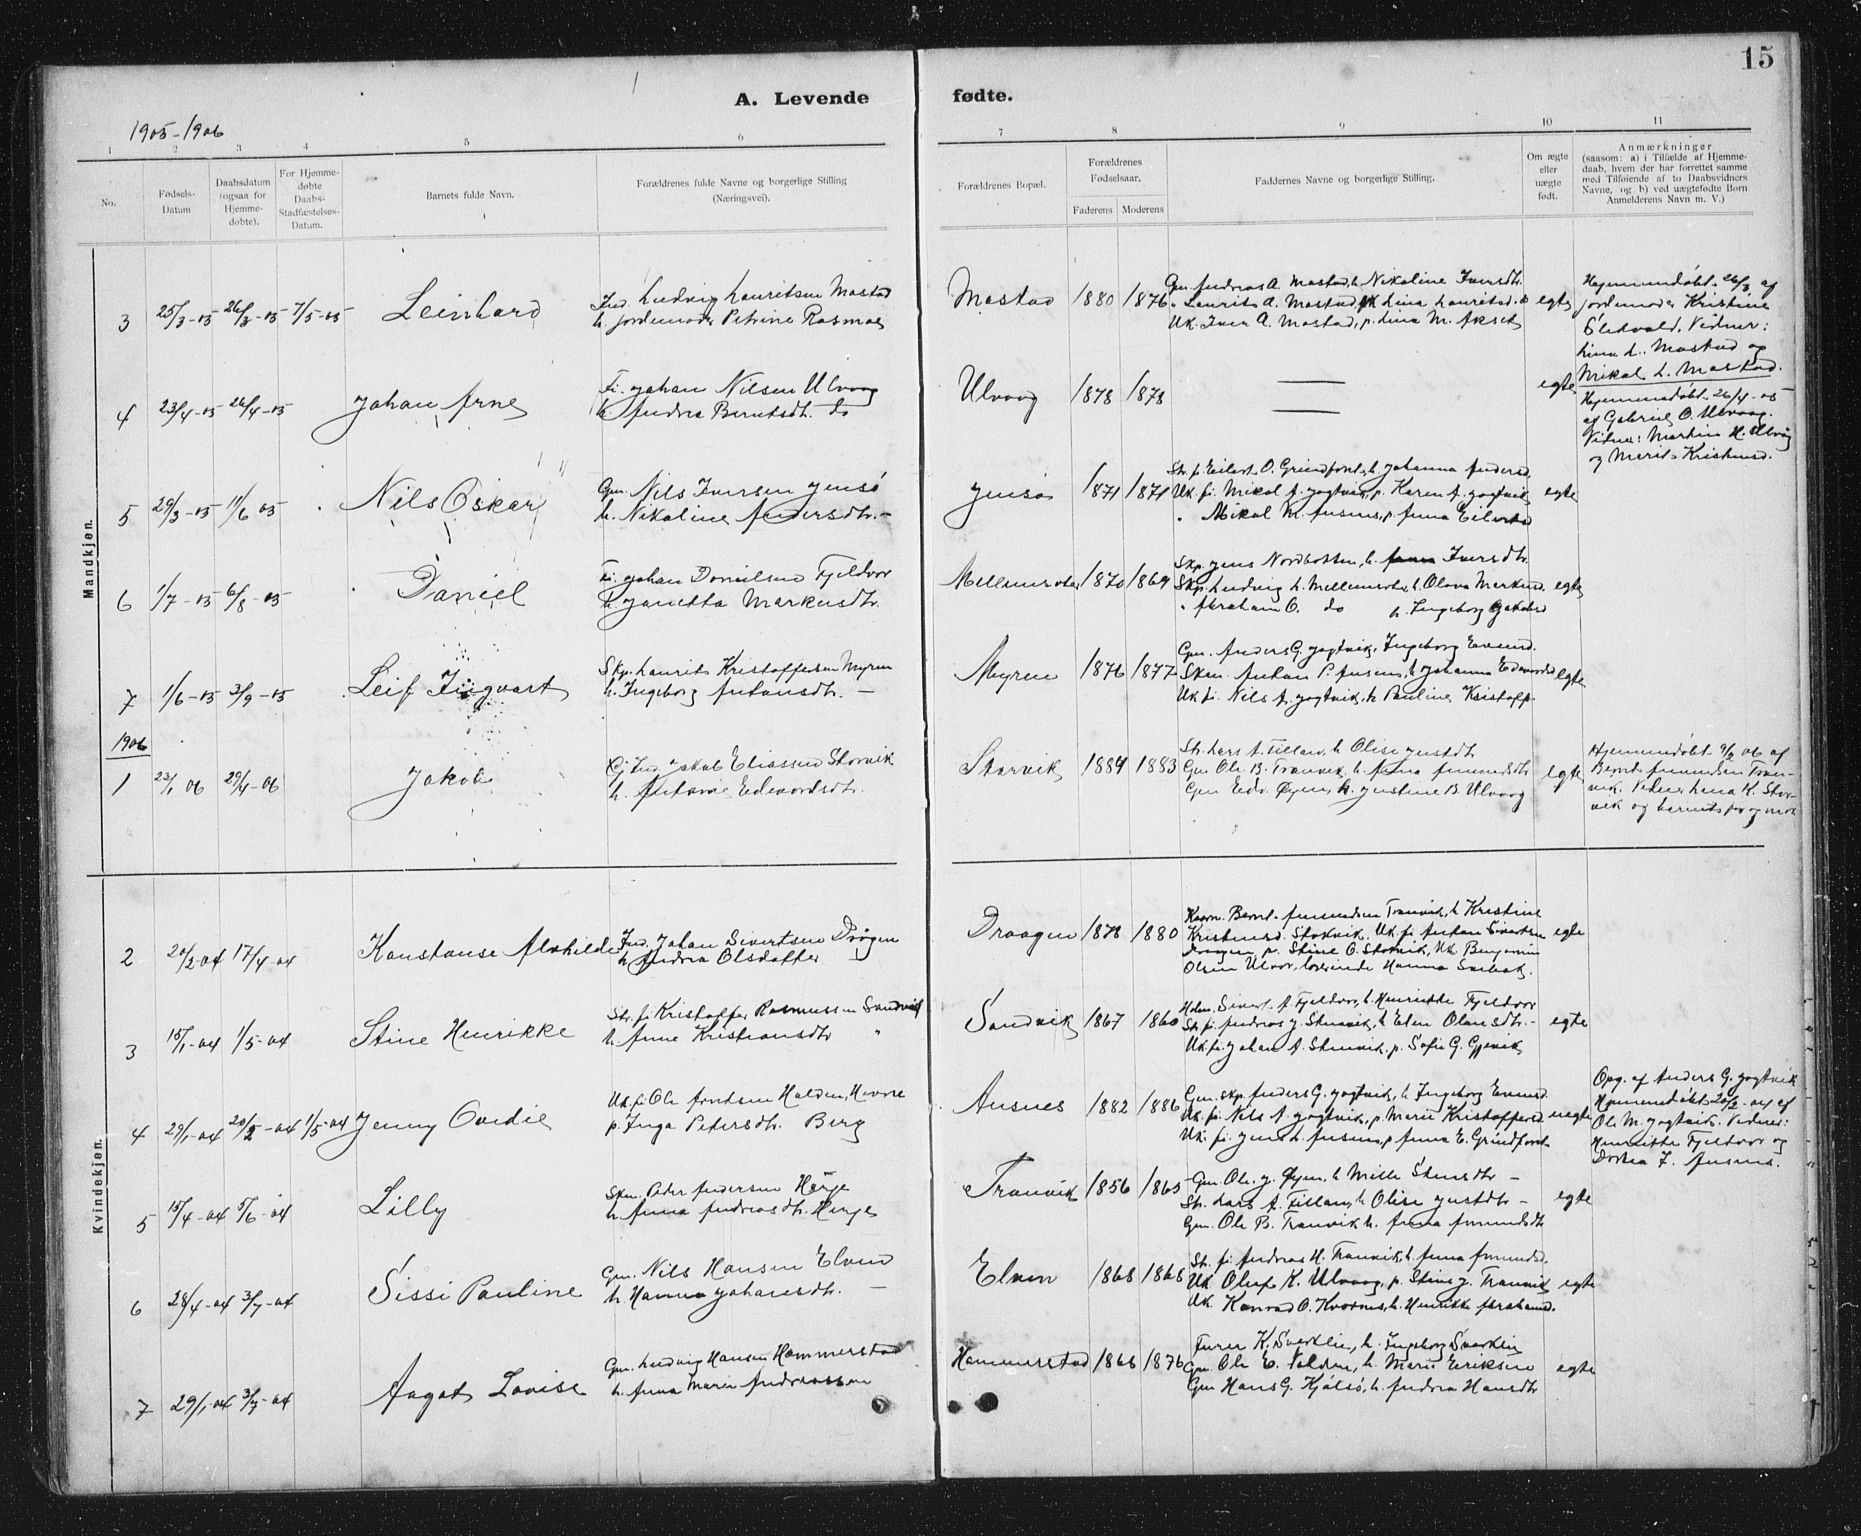 15
A. Levende fødte.
1905-1906
1 2 3 4 5 6 7 8 9 10 11
No.
Fødsels-
Datum
Daabsdatum
(ogsaa for
Hjemme-
døbte).
For Hjemme-
døbte
Daabs-
Stadfæstelses-
Datum.
Barnets fulde Navn.
Forældrenes fulde Navne og borgerlige Stilling
(Næringsvei).
Forældrenes Bopæl.
Forældrenes
Fødselsaar.
Faderens Moderens
Faddernes Navne og borgerlige Stilling.
Om ægte
eller
uægte
født.
Anmærkninger
(saasom: a) i Tilfælde af Hjemme-
daab, hvem der har forrettet samme
med Tilføiende af to Daabsvidners
Navne, og b) ved uægtefødte Børn
Anmelderens Navn m. V.)
Mandkjøn.
3 25/3-05 26/3-05 7/5-05 Leinhard
Ind. Ludvig Lauritsen Mastad
h. jordemoder Petrine Rasmas
Mastad 1880 1876
Gm. Andreas A. Mastad, h. Nikoline Iversdtr.
" Laurits A. Mastad, h. Lina Lauritsd.
Uk. Iver A. Mastad, p. Lina M. Akset
egte
Hjemmedøbt 26/3 af
jordemoder Kristine
Sletvold. Vidner:
Lina L. Mastad og
Mikal L. Mastad.
4 23/4-05 26/4-05 Johan Arne
Fi. Johan Nilsen Ulvaag
h. Andrea Berntsdtr. do
Ulvaag 1878 1878
egte
Hjemmedøbt 26/4-05
af Gabriel O. Ulvaag.
Vidner: Martin H. Ulvåg
og Merit Kristensd.
5 29/3-05 11/6 05 Nils Oskar
Gm. Nils Iversen Jensø
h. Nikoline Andersdtr. -
Jensø 1871 1871
Str. fi. Eilert O. Grindfont, h. Johanna Andersd.
Uk. fi. Mikal A. Jøgtvik, p. Karen A. Jøgtvik
" Mikal M. Ansnes, p. Anna Eilertsd
egte
6 1/7-05 6/8-05 Daniel
Fi. Johan Danielsen Fjeldvær
h. Janetta Markusdtr.
1870 1869
Skp. Jens Nordbotten, h. Iversdtr.
Skp. Ludvig L. h. Olava Markusd.
" Abraham O. do h. Ingeborg
egte
7 1/6-05 3/9-05 Leif Ingvart
Skp. Laurits Kristoffersen Myren
h. Ingeborg Antonsdtr. -
Myren 1876 1877
Gm. Anders G. Jøgtvik, Ingeborg Evensd.
Skm. Anton P. Ansnes, h. Johanna Edvardsd
Uk. fi. Nils A. Jøgtvik, h. Pauline Kristoff.
egte
1906
1 23/1 06 29/4-06 Jakob
Gj. Ind. Jakob Eliassen Storvik
h. Antonie Edvardsdtr.
Storvik 1884 1883
Str. Lars A. Fillan, h. Olise Justdtr
Gm Ole B. Tranvik, h. Anna Amundsdtr
Gm Edv. Øyen, h. Justine B. Ulvaag
egte
Hjemmedøbt 9/2 06 af
Bernt Amundsen Tran-
vik. Vidner Lena K. Stor-
vik og barnets far og mor
Kvindekjøn.
2 20/2-04 17/4-04 Konstanse Alvhilde
Ind. Johan Sivertsen Drågen
h. Andrea Olsdatter
Draagen 1878 1880
Kaarm. Bernt Amundsen Tranvik, h. Kristine
Kristensd. Storvik, Uk. fi. Anton Sivertsen
Draagen, p. Stine O. Storvik, Uk. Benjamin
Olsen Ulvør, lærerinde Hanna
egte
3 15/1-04 1/5-04 Stine Henrikke
Str. fi. Kristoffer Rasmussen Sandvik
h. Anne Kristiansdtr "
Sandvik 1867 1860
Holm. Sivert A. Fjeldvær, h. Henrikke Fjeldvær
Str. fi. Andreas J. Stenvik, h. Elen Olausdtr. -
Uk. fi. Johan A. Stenvik, p. Sofie G. Gjevik
egte
4 29/1-04 20/2-04 1/5-04 Jenny Ovedie
Uk. fi. Ole Arntsen Halden, Hevne
p. Inga Petersdtr. Berg
Ansnes 1882 1886
Gm. Skp. Anders G. Jøgtvik, h. Ingeborg Evensd.
Uk. fi. Nils A. Jøgtvik, p. Marie Kristoffersd
Uk. fi. Jens L. Ansnes, p. Anna E. Grindfont
uegte
Opg. af Anders G. Jøgtvik
Hjemmedøbt 20/2-04 af
Ole M. Jøgtvik. Vidner:
Henrikke Fjeldvær og
Dortea J. Ansnes.
5 15/4-04 5/6-04 Lilly
Skm. Peder Andersen Herje
h. Anna Andreasdtr. Herje
Tranvik 1856 1865
Gm. Ole J. Øyen, h. Mille Stensdtr -
Str. Lars A. Fillan, h. Olise Justdtr -
Gm. Ole B. Tranvik, h. Anna Amundsdtr
egte
6 28/4-04 3/7-04 Sissi Pauline
Gm. Nils Hansen Elven
h. Hanna Johansdtr. -
Elven 1868 1868
Str. fi. Andreas H. Tranvik, h. Anna Amundsd.
Uk Oluf K. Ulvaag, p. Stine J. Tranvik
Uk. Konrad O. Kvernes, h. Henrikke Abrahamsd.
egte
7 29/1-04 3/7-04 Aagot Lovise
Gm. Ludvig Hansen Hammerstad
h. Anna Marie Andreassen
Hammerstad 1868 1876
Furer K. Sverklin, h. Ingeborg Sverklin
Gm. Ole E. Valden, h. Marie Eriksen
Gm Hans G. Kjølsø, h. Andrea Hansdtr
egte